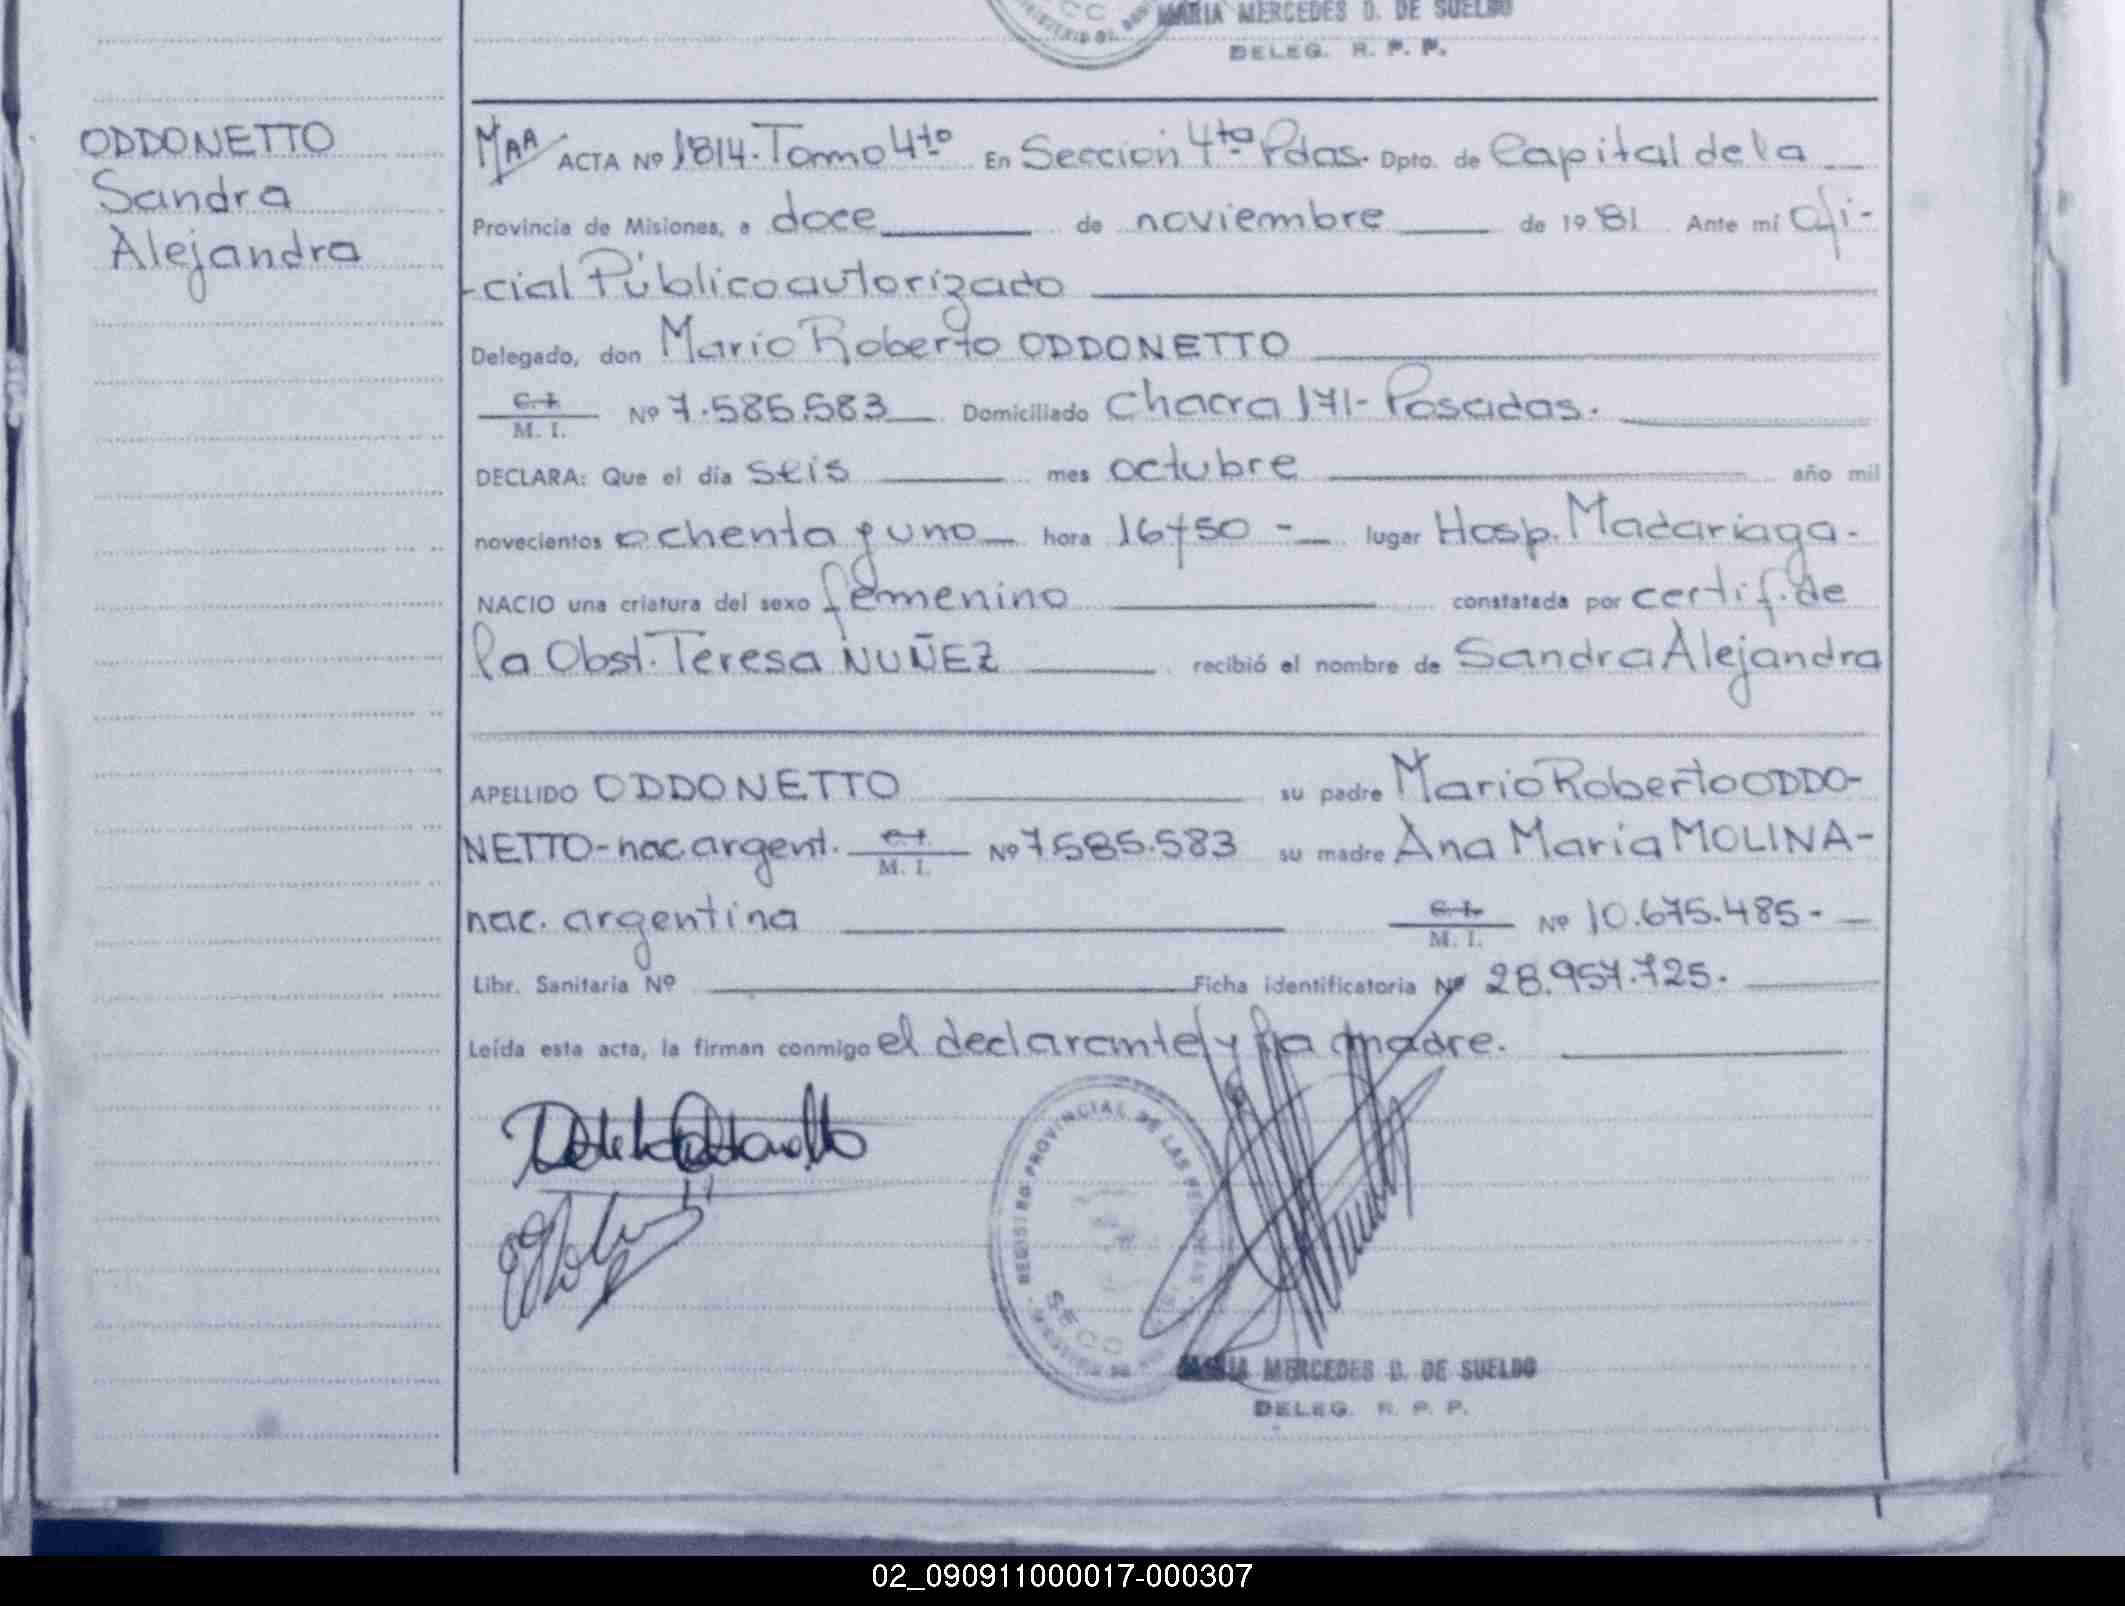 MARIA MERCEDES D. DE SUELDO
DELEG. R. P. P.
ODDONETTO
Sandra
Alejandra
MAA ACTA Nº 1814. Tomo 4to En Seccion 4ta Pdas. Dpto. de Capital de la
Provincia de Misiones, a doce de noviembre de 1981 Ante mí Ofi-
-cial Público autorizado
Delegado, don Mario Roberto ODDONETTO
C.I. M. I. Nº 7.585.583 Domiciliado Chacra 171- Posadas.
DECLARA: Que el día seis mes octubre año mil
novecientos ochenta y uno hora 16 y 50 - lugar Hosp. Madariaga.
NACIO una criatura del sexo femenino constatada por certif. de
la Obst. Teresa NUÑEZ recibió el nombre de Sandra Alejandra
APELLIDO ODDONETTO su padre Mario Roberto ODDO-
NETTO-nac argent. C.I. M. I. Nº 7.585.583 su madre Ana Maria MOLINA-
nac. argentina C.I. M. I. Nº 10.675.485-
Libr. Sanitaria Nº Ficha identificatoria Nº 28.957.725.
Leída esta acta, la firman conmigo el declarante y la madre.
REGISTRO PROVINCIAL DE LAS PERSONAS
SECC
MARIA MERCEDES D. DE SUELDO
DELEG. R. P. P.
02_090911000017-000307